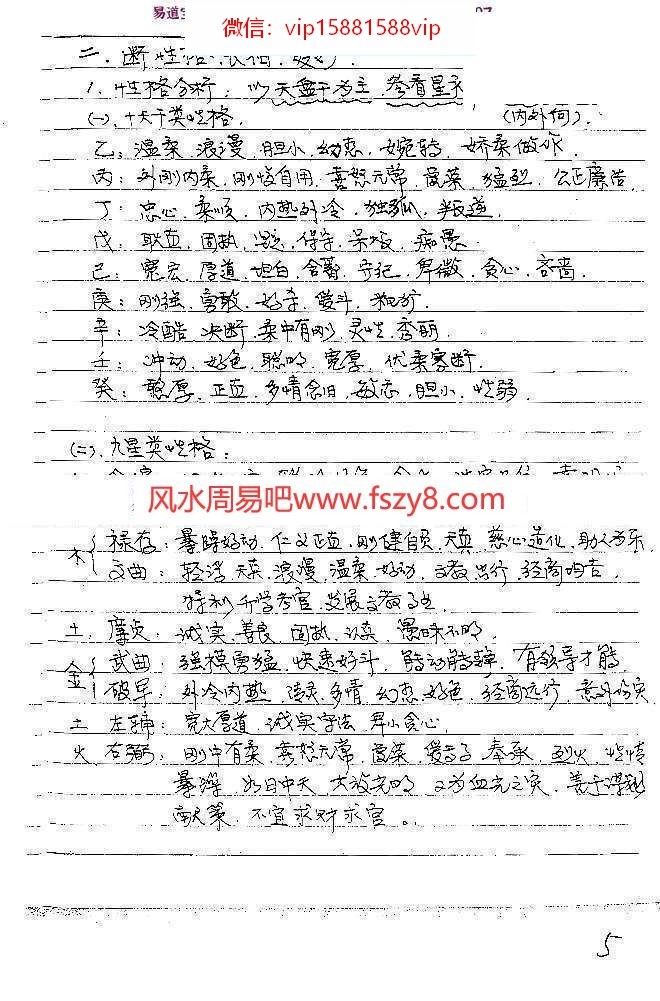 易道
微信：vip15881588vip
二、断性格
1. 性格分析：以天盘干为主，参看星、
(一)、十天干类性格。 (内外何)。
乙：温柔、浪漫、胆小、幻恋、婉转、娇柔做作
丙：外刚内柔、刚愎自用、喜怒无常、猛烈、公正廉洁
丁：忠心、柔顺、内热外冷、独孤、叛逆
戊：耿直、固执、保守、呆板、痴愚
己：宽宏、厚道、坦白、含蓄、卑微、贪心、吝啬
庚：刚强、勇敢、好斗、粗犷
辛：冷酷、决断、柔中有刚、灵性、秀丽
壬：冲动、好色、聪明、宽厚、优柔寡断。
癸：憨厚、正直、多情念旧、敏恋、胆小、性弱
(二)、九星类性格：
风水周易吧www.fszy8.com
木 禄存：暴躁好动、仁义正直、刚健自负、天真、慈心造化、助人为乐
文曲：轻浮、浪漫、温柔、好动、文教出行、经商均吉
特利升学考官、发展文教事业
土、廉贞：诚实、善良、固执、认真、愚昧不明
金 武曲：强横勇猛、快速好斗、能动能静、有领导才能
破军：外冷内热、多情、幻恋、好色、经商远行、意外伤灾
土 左辅：宽大厚道、诚实守法、贪心
火 右弼：刚中有柔、喜怒无常、奉承、烈火、性情
暴躁、如日中天、大放光明、又为血光之灾、善于谋划
献策、不宜求财求官。
5